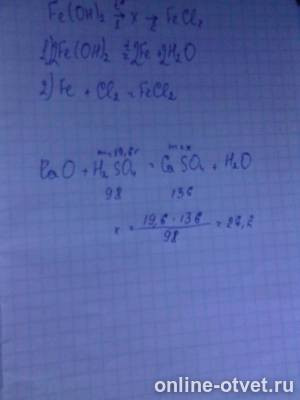 Fe(OH)₂ → x → FeCl₂
1) 2Fe(OH)₂ → 2Fe + 2H₂O
2) Fe + Cl₂ = FeCl₂
m=19,6г m=x
CaO + H₂SO₄ = CaSO₄ + H₂O
98 136
x = 19,6 · 136 / 98 = 26,2
online-otvet.ru